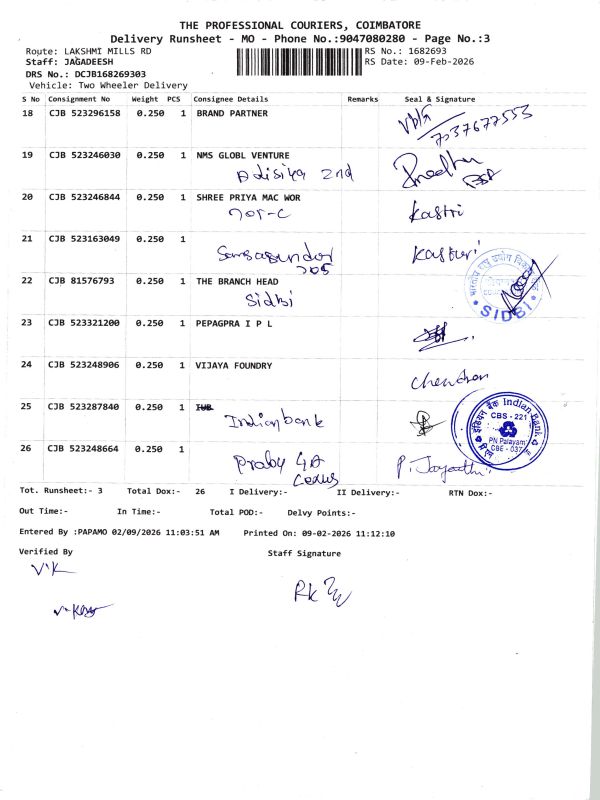 THE PROFESSIONAL COURIERS, COIMBATORE
Delivery Runsheet - MO - Phone No.:9047080280 - Page No.:3
Route: LAKSHMI MILLS RD RS No.: 1682693
Staff: JAGADEESH RS Date: 09-Feb-2026
DRS No.: DCJB168269303
Vehicle: Two Wheeler Delivery
S No Consignment No Weight PCS Consignee Details Remarks Seal & Signature
18 CJB 523296158 0.250 1 BRAND PARTNER
7037677553
19 CJB 523246030 0.250 1 NMS GLOBL VENTURE
2nd
20 CJB 523246844 0.250 1 SHREE PRIYA MAC WOR
701-C Kastri
21 CJB 523163049 0.250 1
Kasturi
705
22 CJB 81576793 0.250 1 THE BRANCH HEAD
Sidbi SIDBI
23 CJB 523321200 0.250 1 PEPAGPRA I P L
24 CJB 523248906 0.250 1 VIJAYA FOUNDRY
Chendran
25 CJB 523287840 0.250 1 IUB
Indian bank
इंडियन बैंक Indian Bank
CBS - 221
PN Palayam
CBE - 037
26 CJB 523248664 0.250 1
P. Jayanthi
Tot. Runsheet:- 3 Total Dox:- 26 I Delivery:- II Delivery:- RTN Dox:-
Out Time:- In Time:- Total POD:- Delvy Points:-
Entered By :PAPAMO 02/09/2026 11:03:51 AM Printed On: 09-02-2026 11:12:10
Verified By Staff Signature
V.K